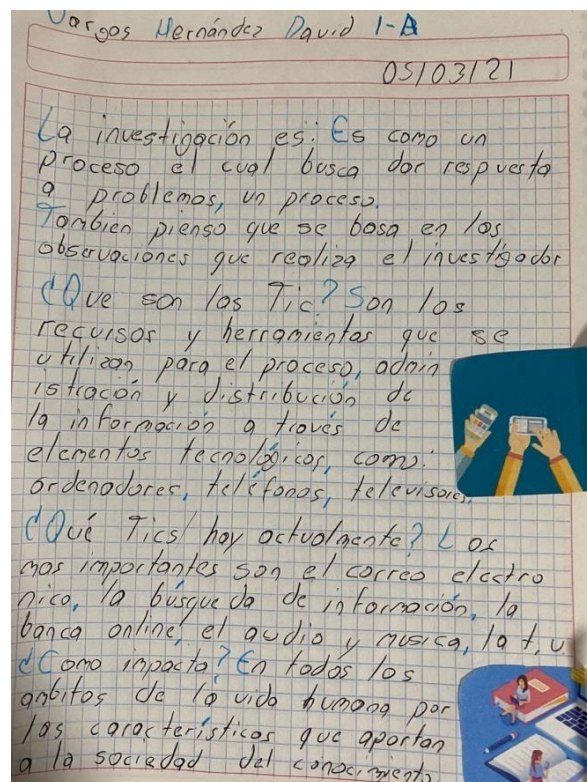 Vargas Hernández David 1-A
05/03/21
La investigación es: Es como un
proceso el cual busca dar respuesta
a problemas, un proceso.
Tambien pienso que se basa en las
observaciones que realiza el investigador
¿Que son las Tic? Son los
recursos y herramientas que se
utilizan para el proceso, admin
istración y distribución de
la información a través de
elementos tecnológicos, como:
ordenadores, teléfonos, televisores,
¿Qué Tics hay actualmente? Las
mas importantes son el correo electro
nico, la búsqueda de información, la
banca online, el audio y musica, la t,v
¿Como impacta? En todos los
ambitos de la vida humana por
las características que aportan
a la sociedad del conocimiento